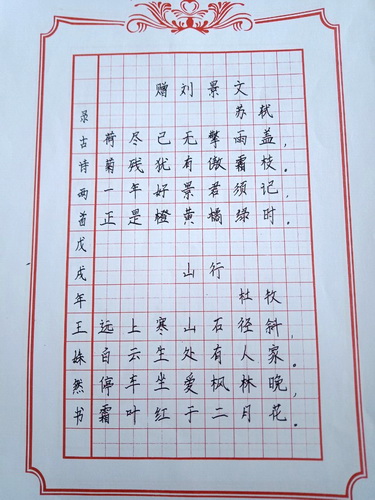 赠刘景文
苏轼
荷尽已无擎雨盖,
菊残犹有傲霜枝。
一年好景君须记,
正是橙黄橘绿时。
山行
杜牧
远上寒山石径斜,
白云生处有人家。
停车坐爱枫林晚,
霜叶红于二月花。
录古诗两首戊戌年王姝然书